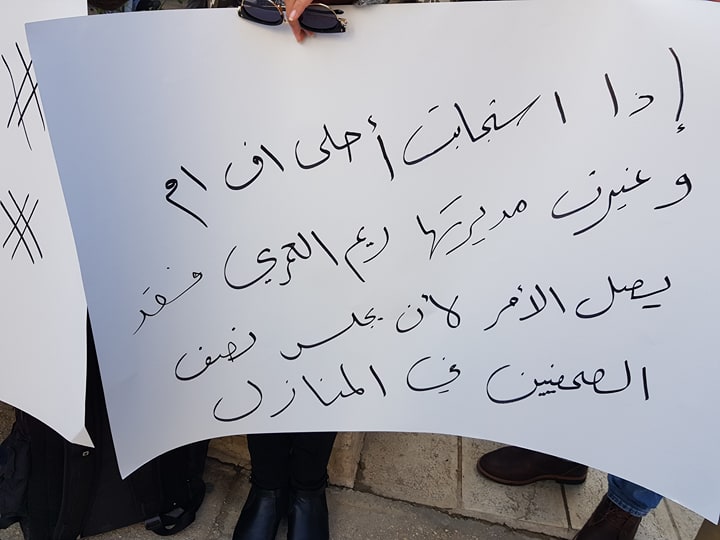 إذا استجابت أحلى اف ام
وغيرت مديرتها ريم العمري فقد
يصل الأمر لأن يجلس نصف
الصحفيين في المنازل